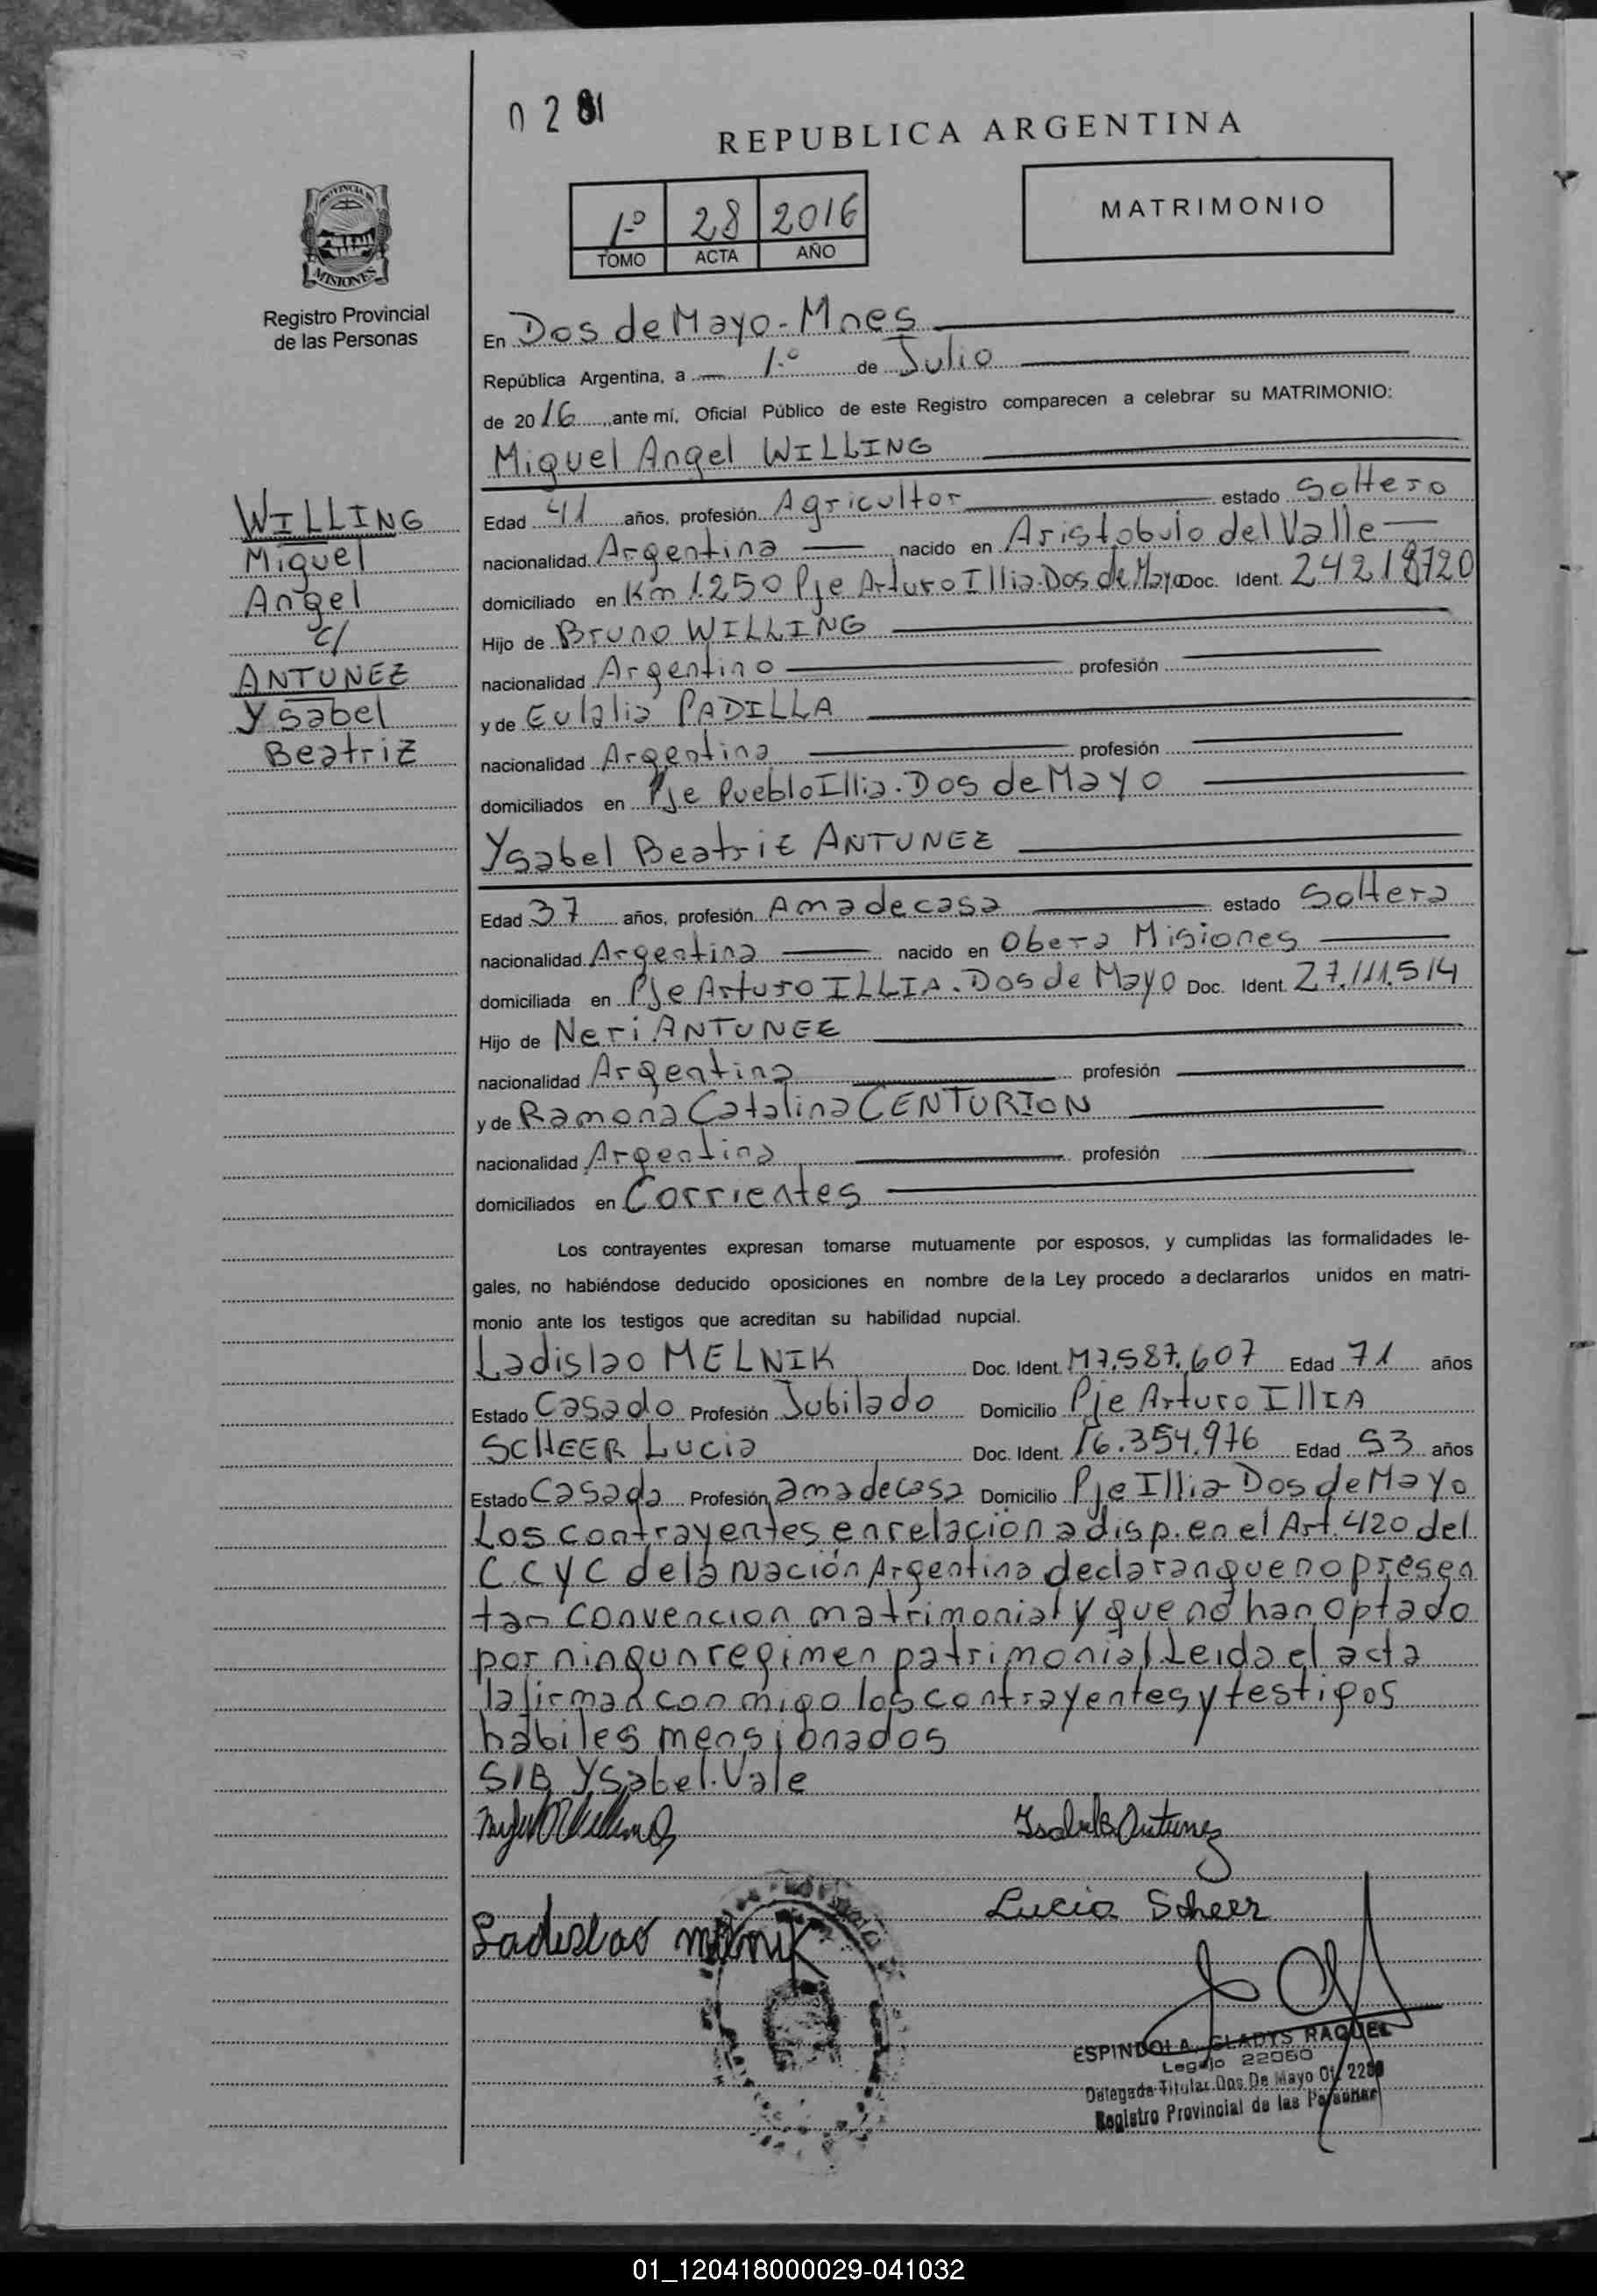 REPUBLICA ARGENTINA
PROVINCIA DE
MISIONES
Registro Provincial
de las Personas
1º 28 2016
TOMO ACTA AÑO
MATRIMONIO
En Dos de Mayo - Mnes
República Argentina, a 1º de Julio
de 2016, ante mí, Oficial Público de este Registro comparecen a celebrar su MATRIMONIO:
Miguel Angel WILLING
WILLING
Miguel
Angel
c/
ANTUNEZ
Ysabel
Beatriz
Edad 41 años, profesión Agricultor estado Soltero
nacionalidad Argentina nacido en Aristobulo del Valle
domiciliado en Km 1.250 Pje Arturo Illia. Dos de Mayo Doc. Ident. 24218720
Hijo de Bruno WILLING
nacionalidad Argentino profesión
y de Eulalia PADILLA
nacionalidad Argentina profesión
domiciliados en Pje Pueblo Illia. Dos de Mayo
Ysabel Beatriz ANTUNEZ
Edad 37 años, profesión Ama de casa estado Soltera
nacionalidad Argentina nacido en Obera Misiones
domiciliada en Pje Arturo ILLIA. Dos de Mayo Doc. Ident. 27.111.514
Hijo de Neri ANTUNEZ
nacionalidad Argentina profesión
y de Ramona Catalina CENTURION
nacionalidad Argentina profesión
domiciliados en Corrientes
Los contrayentes expresan tomarse mutuamente por esposos, y cumplidas las formalidades le-
gales, no habiéndose deducido oposiciones en nombre de la Ley procedo a declararlos unidos en matri-
monio ante los testigos que acreditan su habilidad nupcial.
Ladislao MELNIK Doc. Ident. M7.587.607 Edad 71 años
Estado Casado Profesión Jubilado Domicilio Pje Arturo IllIA
SCHEER Lucia Doc. Ident. 16.354.976 Edad 53 años
Estado Casada Profesión ama de casa Domicilio Pje Illia - Dos de Mayo
Los contrayentes en relación a disp. en el Art. 420 del
C.C y C de la Nación Argentina declaran que no presen
tan convencion matrimonial y que no han optado
por ningun regimen patrimonial. Leida el acta
la firman con migo los contrayentes y testigos
habiles mensionados
S/B Ysabel. Vale
Isabel B Antunez
Lucia Scheer
Ladislao Melnik
ESPINDOLA, GLADYS RAQUEL
Legajo 22060
Delegada Titular Dos De Mayo Of.
Registro Provincial de las Personas
01_120418000029-041032